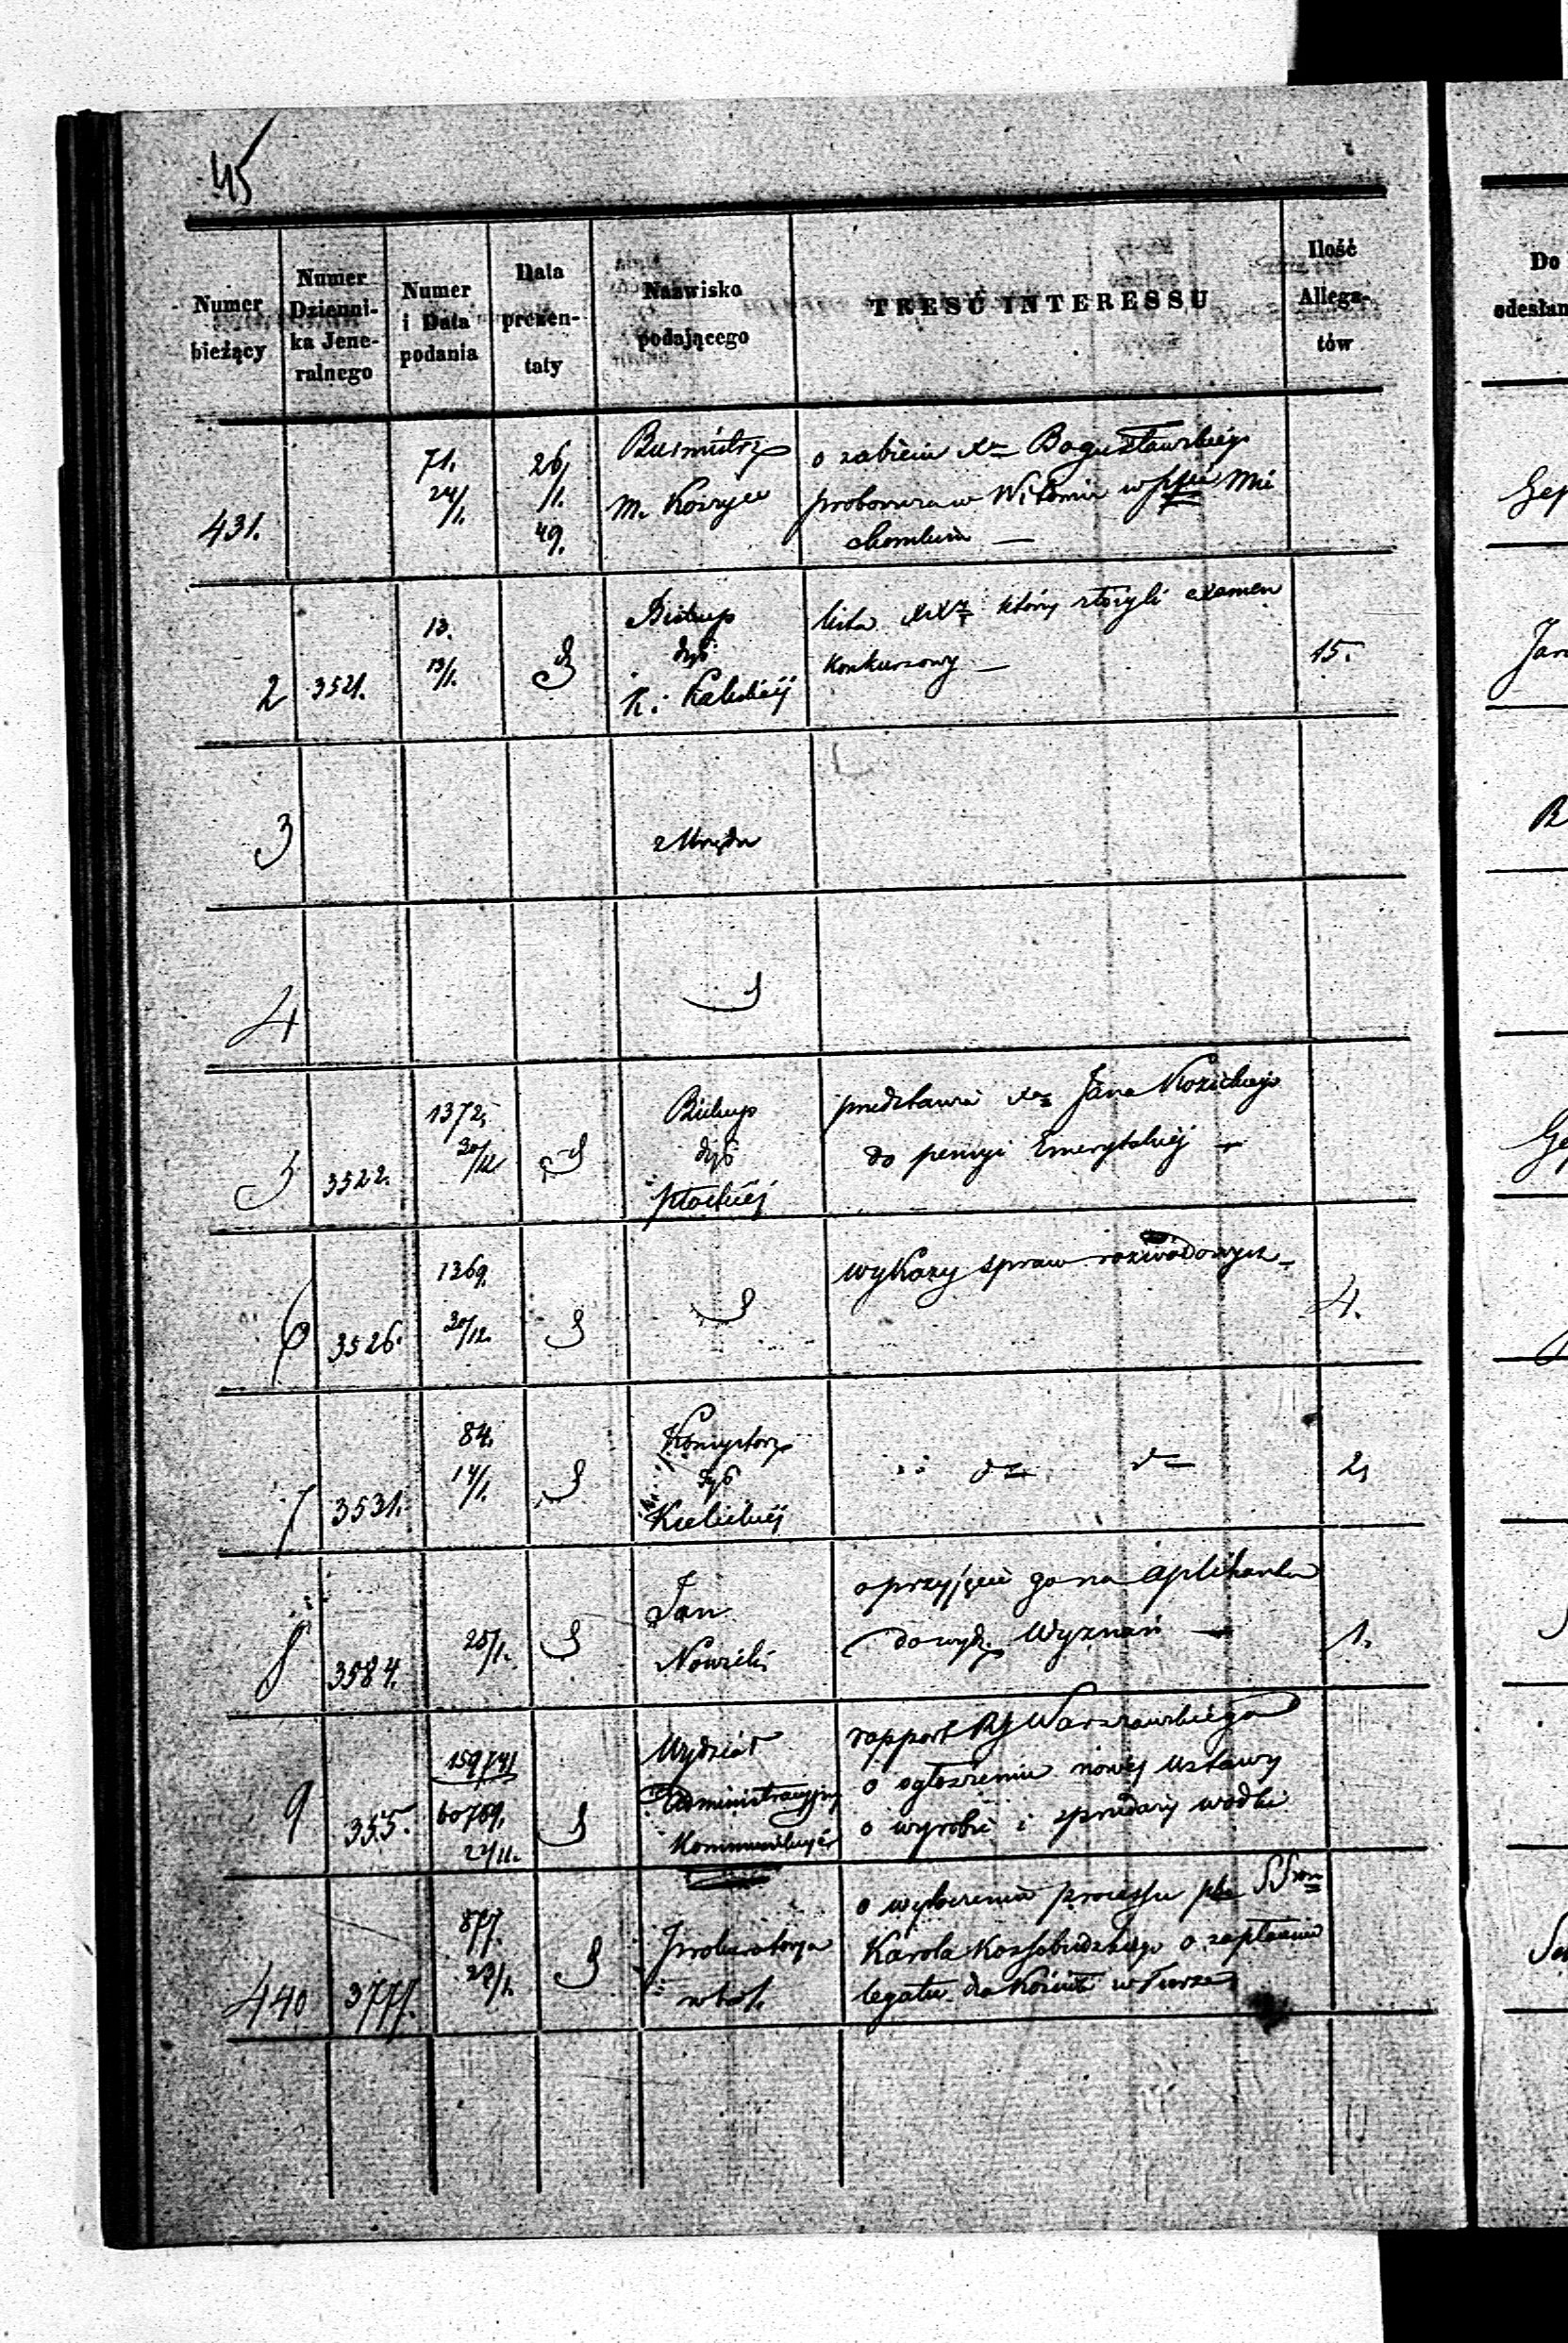 45
Numer bieżący
Numer Dzienni-ka Jene-ralnego
Numer i Data podania
Data prezen-taty
Nazwisko podającego
TREŚĆ INTERESSU
Ilość Allega-tów
Do
odesłan
431.
71.
24/1.
26/1.
49.
Burmistrz
m. Koszyce
o zabiciu Xa Bogusławskiego
proboszcza w
2
3521.
13.
13/1.
Biskup
dyec
K. Kaliskiej
lista XXży którzy złożyli examen
konkursowy —
15.
3
z Urzędu
4
5
3522.
1372.
30/12
Biskup
dyec
Płockiej
przedstawia Xa Jana Kozickiego
do pensyi Emerytalnej —
6
3526.
1369.
30/12.
wykazy spraw rozwodowych —
4.
7
3531.
84.
14/1.
Konsystorz
dyec
Kieleckiej
2
8
3584.
25/1.
Jan
Nowicki
o przyjęcie go na aplikanta
do wydz. Wyznań —
1.
9
355.
159741
60769.
22/11.
Wydział
Administracyjny
rapport RG Warszawskiego
o ogłoszeniu nowej ustawy
o wyrobie i sprzedaży wódki
440
3777.
877.
Prokuratorya
o wytoczeniu processu
Karola o zapłacenie
legatu dla Kościoła w